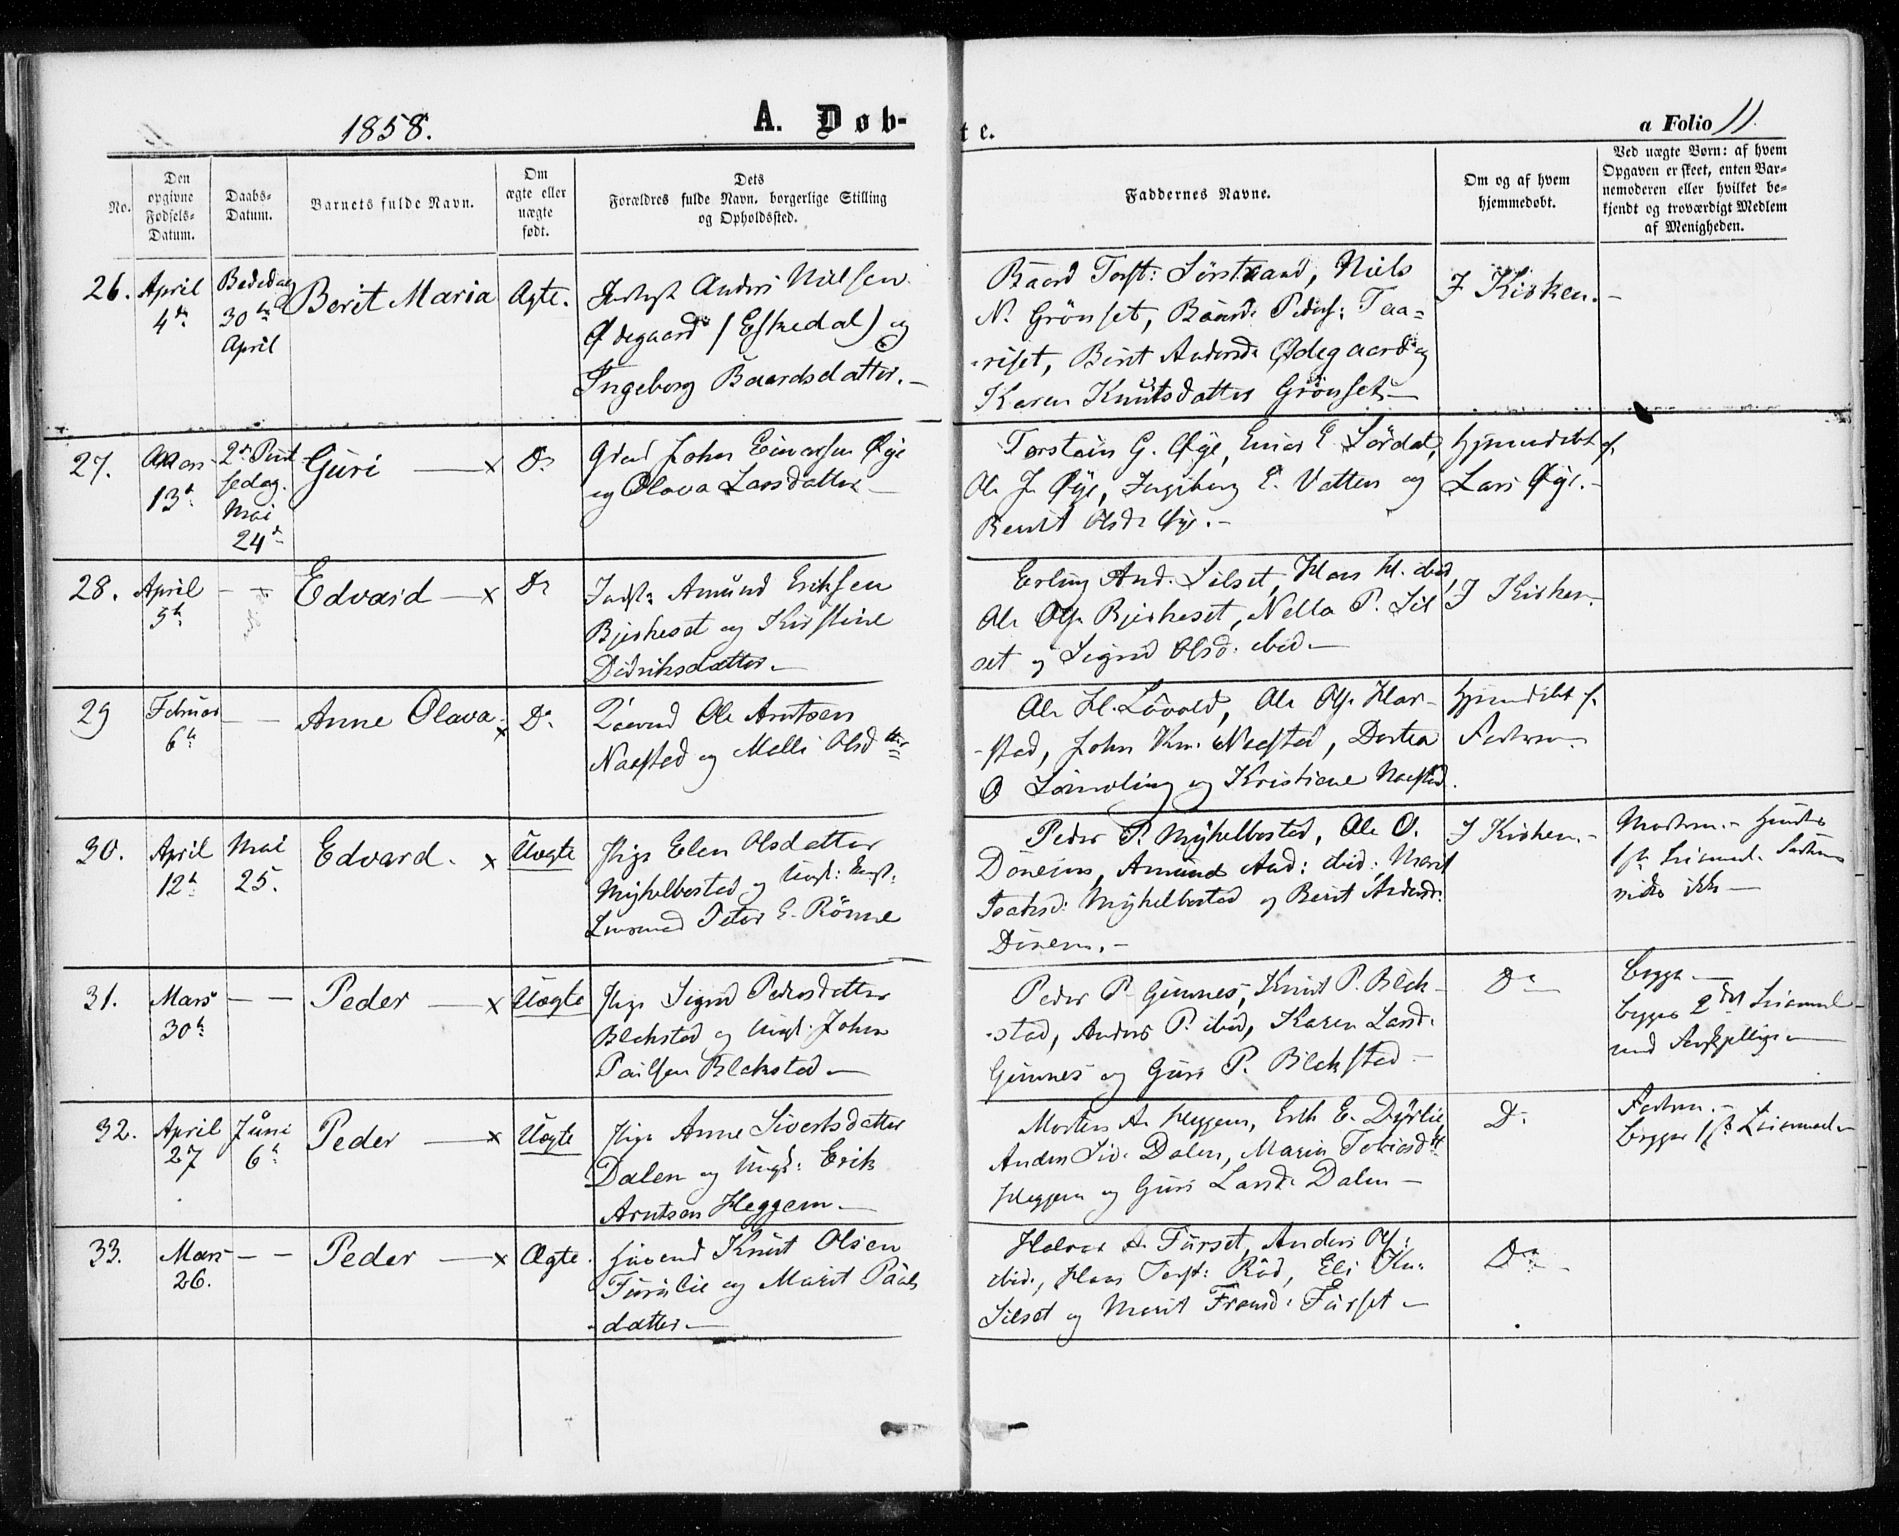 1858.
A. Døb-
te.
a Folio 11.
No.
Den opgivne Fødsels-Datum.
Daabs-Datum.
Barnets fulde Navn.
Om ægte eller uægte født.
Dets Forældres fulde Navn, borgerlige Stilling og Opholdssted.
Faddernes Navne.
Om og af hvem hjemmedøbt.
Ved uægte Børn: af hvem Opgaven er skeet, enten Barnemoderen eller hvilket bekjendt og troværdigt Medlem af Menigheden.
26. April 4de
Bededag 30te April
Berit Maria
Ægte.
Anders Nielsen
Ødegaard (Eskedal) og
Ingeborg Baardsdatter.
Baard Torst: Sørstrand, Niels
N. Grönset, Baard Peders: Taa-
riset, Berit Andersd: Ødegaard og
Karen Knutsdatter Grönset
I Kirken.
27. Mars 13de
2den Pintsedag. Mai 24de
Guri
Do
John Einarsen Øye
og Olava Larsdatter
Torstein G. Øye, Einar E. Lördal,
Ole J. Øye, Ingeborg E. Vatten og
Berit Olsdr Øye.
Hjemmedøbt af
Lars Øye.
28. April 5te
Edvard
Do
Indst: Amund Eriksen
Bjerkeset og Kirstine
Didriksdatter
Erling And. Silset, Hans H. ibid,
Ole Ols. Bjerkeset, Nella P. Sil
set og Sigrid Olsd: ibid
I Kirken
29 Februar 6te
Anne Olava
Do
Ole Arntsen
Naastad og Melli Olsdtter
Ole H. Lövold, Ole Ols. Har-
stad, John Kn. Naastad, Dortea
O og Kristiane Naastad.
Hjemmedøbt af
Faderen
30. April 12te
Mai 25.
Edvard.
Uægte
Pige Elen Olsdatter
Myhelbostad og Ungk:
Peter E. Rönne
Peder P. Myhelbostad, Ole O.
Dönem, Amund And: ibid; Marit
Isaksd: Myhelbostad og Berit Andersd:
Dönem.
I Kirken.
Moderen. Hendes
1ste Leiermaal. Faderens
vides ikke
31. Mars 30te
Peder
Uægte
Pige Sigrid Pedersdatter
Blekstad og Ungk: John
Paulsen Blekstad
Peder P. Gimnes, Knut P. Blek-
stad, Anders P. ibid, Karen Larsd.
Gimnes og Guri P. Blekstad
Do
Begge
begges 2det Leiermaal
med
32. April 27
Juni 6te
Peder
Uægte
Pige Anne Sivertsdatter
Dalen og Ungk: Erik
Arntsen Heggem
Morten A. Heggem, Erik E. Dyrlie,
Anders Siv. Dalen, Marin Tobiasdtr
Heggem og Guri Larsd. Dalen
Do
Faderen.
begges 1ste Leiermaal
33. Mars 26.
Peder
Ægte.
Knut Olsen
Furulie og Marit Paals
datter
Halvor A. Furset, Anders Ols:
ibid., Hans Torst: Röd, Eli Kn.
Silset og Marit Fransd: Furset
Do